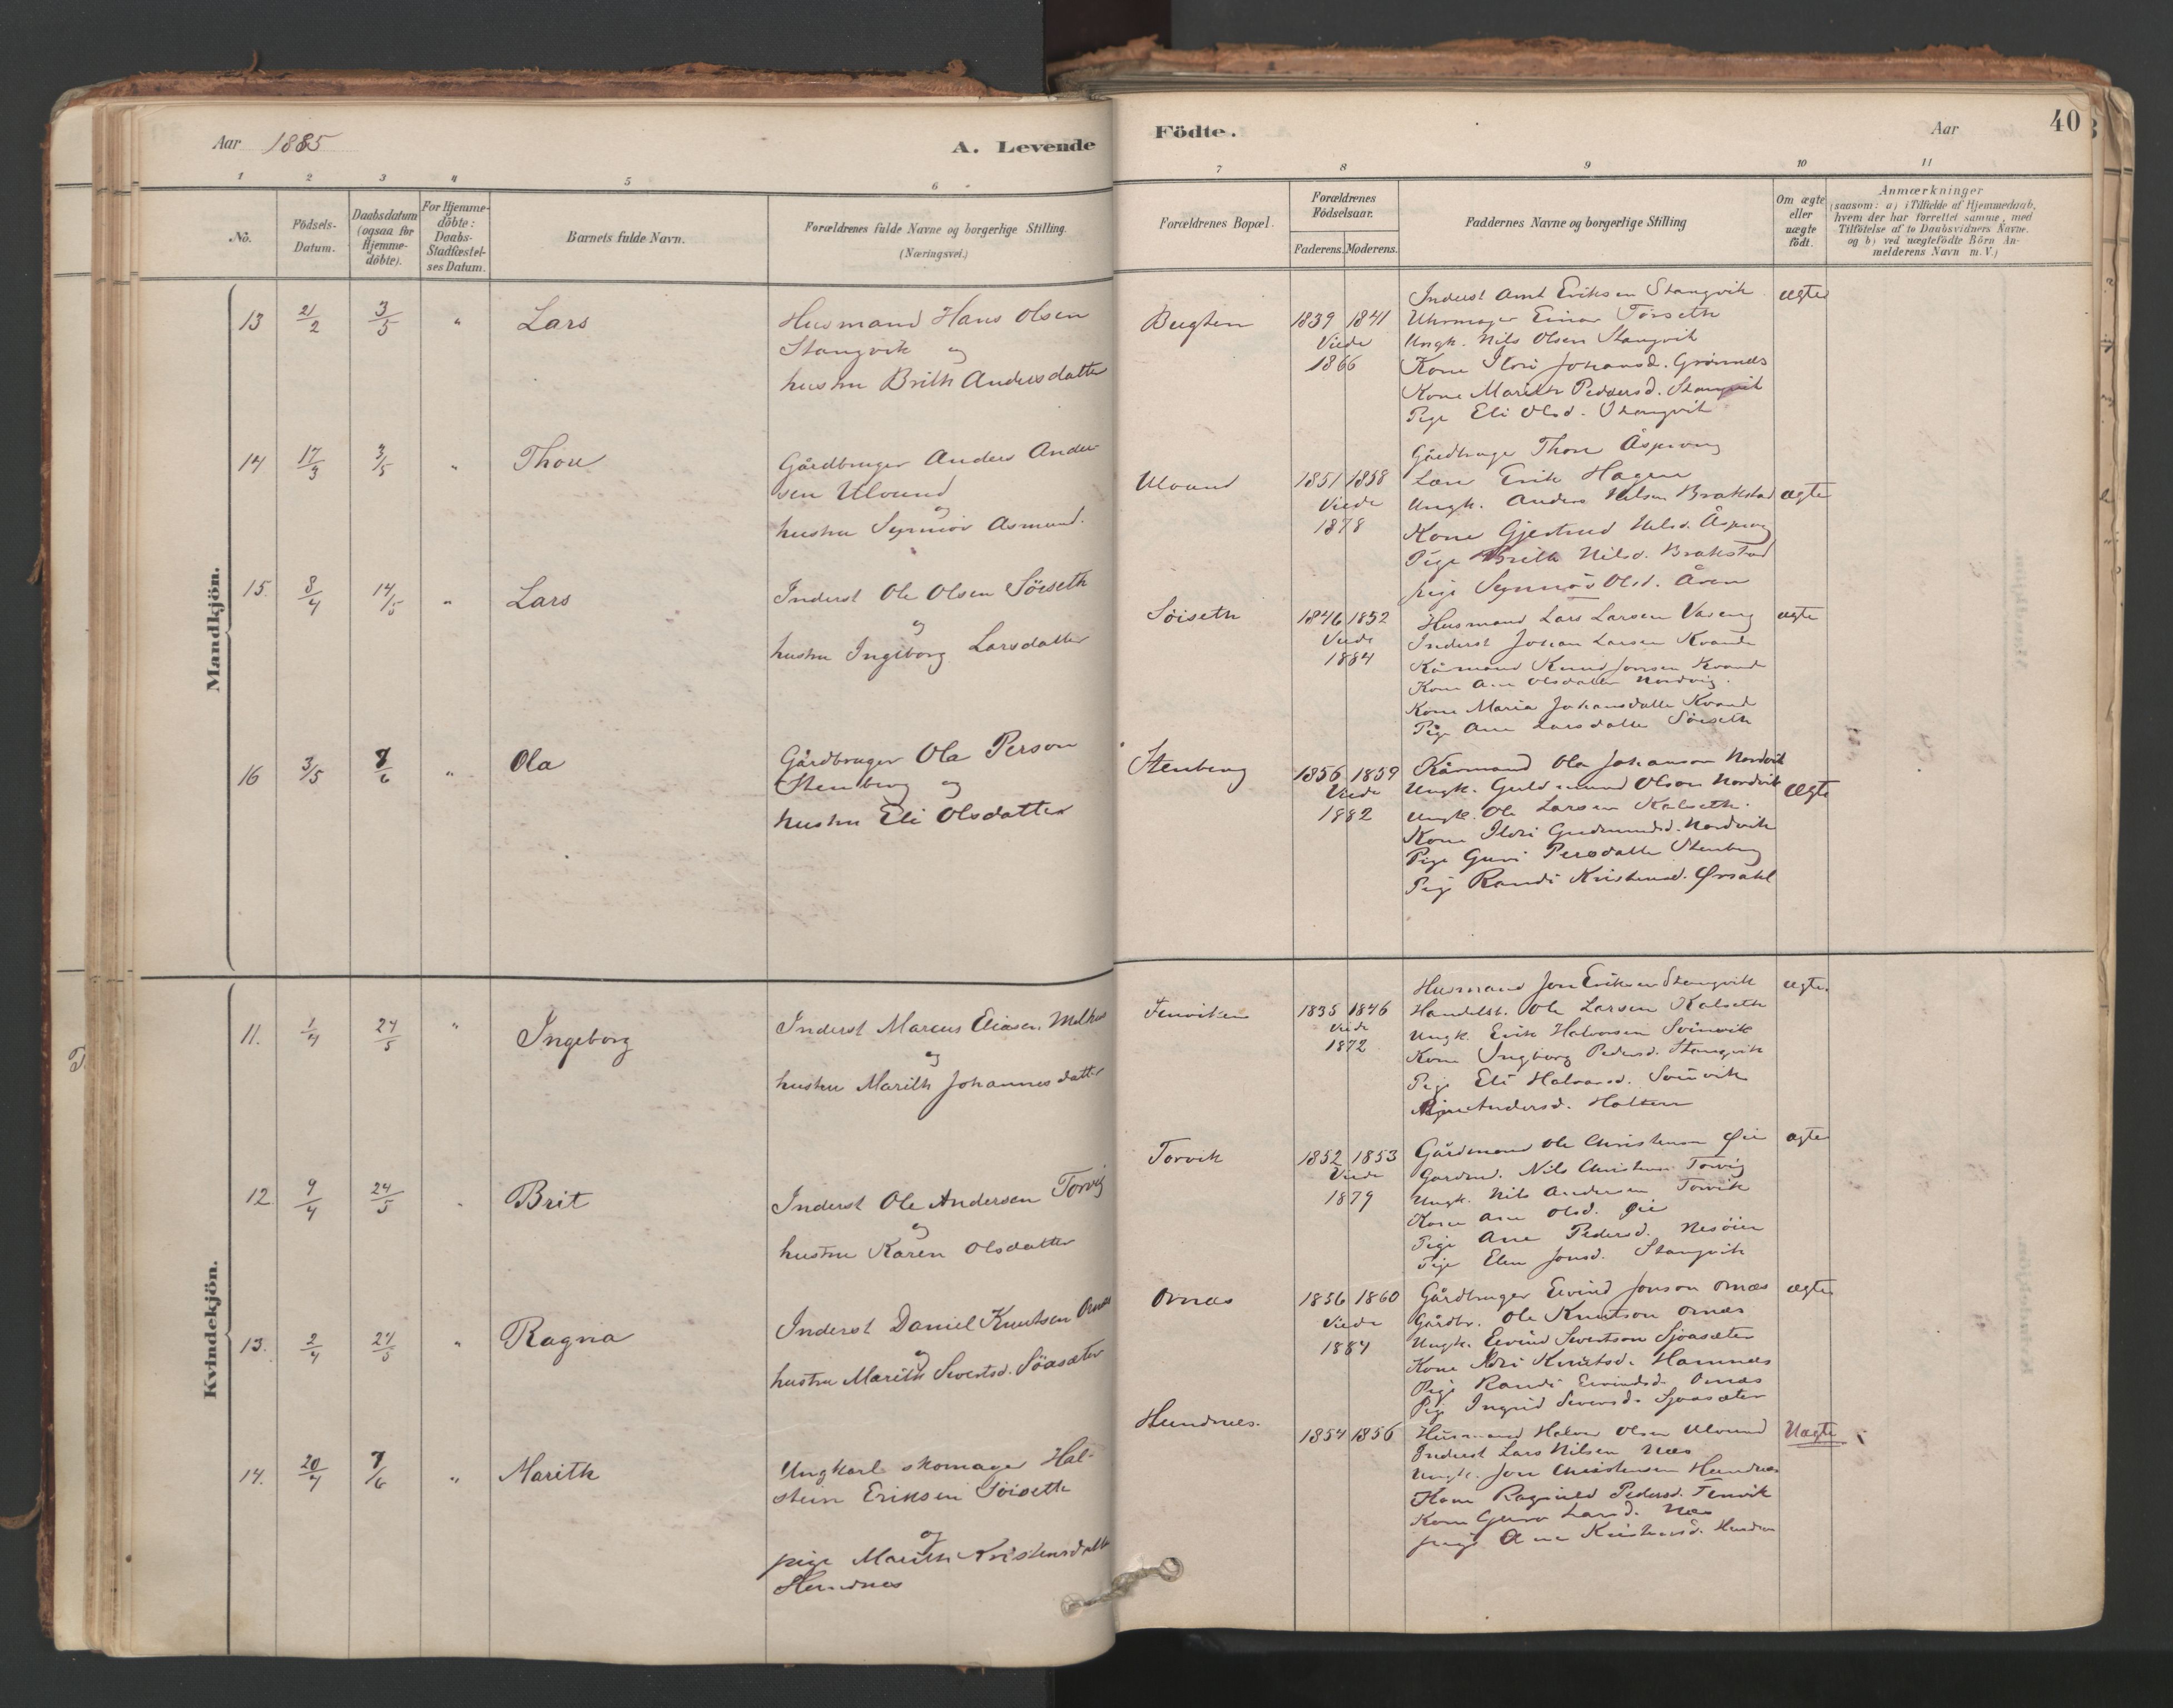 Aar 1885
A. Levende
Födte.
Aar
40
1 2 3 4 5 6 7 8 9 10 11
No.
Födsels-
Datum.
Daabsdatum
(ogsaa for
Hjemme-
döbte).
For Hjemme-
döbte:
Daabs-
Stadfæstel-
ses Datum.
Barnets fulde Navn.
Forældrenes fulde Navne og borgerlige Stilling.
(Næringsvei.)
Forældrenes Bopæl.
Forældrenes
Födselsaar.
Faderens. Moderens.
Faddernes Navne og borgerlige Stilling
Om ægte
eller
uægte
födt.
Anmærkninger
(saasom: a) i Tilfælde af Hjemmedaab,
hvem der har forrettet samme, med
Tilföielse af to Daabsvidners Navne.
og b) ved uægtefödte Börn An-
melderens Navn m. V.)
Mandkjön.
13 21/2 3/5 " Lars
Husmand Hans Olsen
Stangvik og
hustru Brith Andersdatter
1839 1841
Viede
1866
Inderst Arnt Eriksen Stangvik
Uhrmager Einar Törseth
Ungk. Nils Olsen Stangvik
Kone Johansd. Grönnes
Kone Marith Pedersd. Stangvik
Pige Eli Olsd. Stangvik
ægte
14 17/3 3/5 "
Gårdbruger Anders Ander-
sen Ulvund
og
hustru Synnöv Asmund.
Ulvund
1851 1858
Viede
1878
Gårdbruger Thore
Erik Hagen
Ungk. Anders Nilsen Brakstad
Kone Gjertrud Nilsd.
Pige Brith Nilsd. Brakstad
pige Synnöv Olsd.
ægte
15. 8/4 14/5 " Lars
Inderst Ole Olsen Söiseth
og
hustru Ingeborg Larsdatter
Söiseth
1846 1852
Viede
1884
Husmand Lars Larsen Vaseng
Inderst Johan Larsen Kvande
Kårmand Knud Jonsen Kvande
Kone Ane Olsdatter Nordvig.
Kone Maria Johansdatter Kvande
Pige Ane Larsdatter Söiseth
ægte
16 3/5 7/6 " Ola
Gårdbruger Ola Person
Stenberg og
hustru Eli Olsdatter
Stenberg
1856 1859
Viede
1882
Kårmand Ola Johanson Nordvik
Ungk. Guldmund Olson Nordvik
Ungk. Ole Larsen Kalseth.
Kone Gudmundsd. Nordvik
Pige Guri Persdatter Stenberg
Pige Randi Kristensd. Örsahl
ægte
Kvindekjön.
11. 1/4 24/5 " Ingeborg
Inderst Marcus Eliasen Melhus
og
hustru Marith Johannesdatter
Fenviken
1835 1846
Viede
1872
Husmand Jon Eriksen Stangvik
Handelsb. Ole Larsen Kalseth
Ungk. Erik Halvorsen Svinvik
Kone Ingborg Pedersd. Stangvik
Pige Eli Halvorsd. Svinvik
Andersd. Halten
ægte.
12. 9/4 24/5 " Brit
Inderst Ole Andersen Torvig
og
hustru Karen Olsdatter
Torvik
1852 1853
Viede
1879
Gårdmand Ole Christensen Öie
Gardmd. Nils Christensen Torvig
Ungk. Nils Andersen Torvik
Kone Ane Olsd. Öie
Pige Ane Pedersd. Nesöien
Pige Elen Jonsd. Stangvik
ægte
13. 2/4 24/5 " Ragna
Inderst Daniel Knutsen Ornæs
og
hustru Marith Sivertsd. Söasæter
Ornæs
1856 1860
Viede
1884
Gårdbruger Eivind Jonson Ornæs
Gårdbr. Ole Knutson Ornæs
Ungk. Eivind Sivertson Sjöasæter
Kone Knutsd. Hamnæs
Pige Randi Eivindsd. Ornæs
Pige Ingrid Siversd. Sjöasæter
ægte
14. 20/4 7/6 " Marith
Ungkarl skomager Hal-
stein Eriksen Söiseth
og
pige Marith Kristensdatter
Hendnes
Hendnes.
1854 1856
Husmand Halvor Olsen Ulvund
Inderst Lars Nilsen Næs
Ungk. Jon Christensen Hendnes
Kone Ragnild Pedersd. Fenvik
Kone Guro Larsd. Næs
pige Ane Kristensd. Hendnes
Uægte